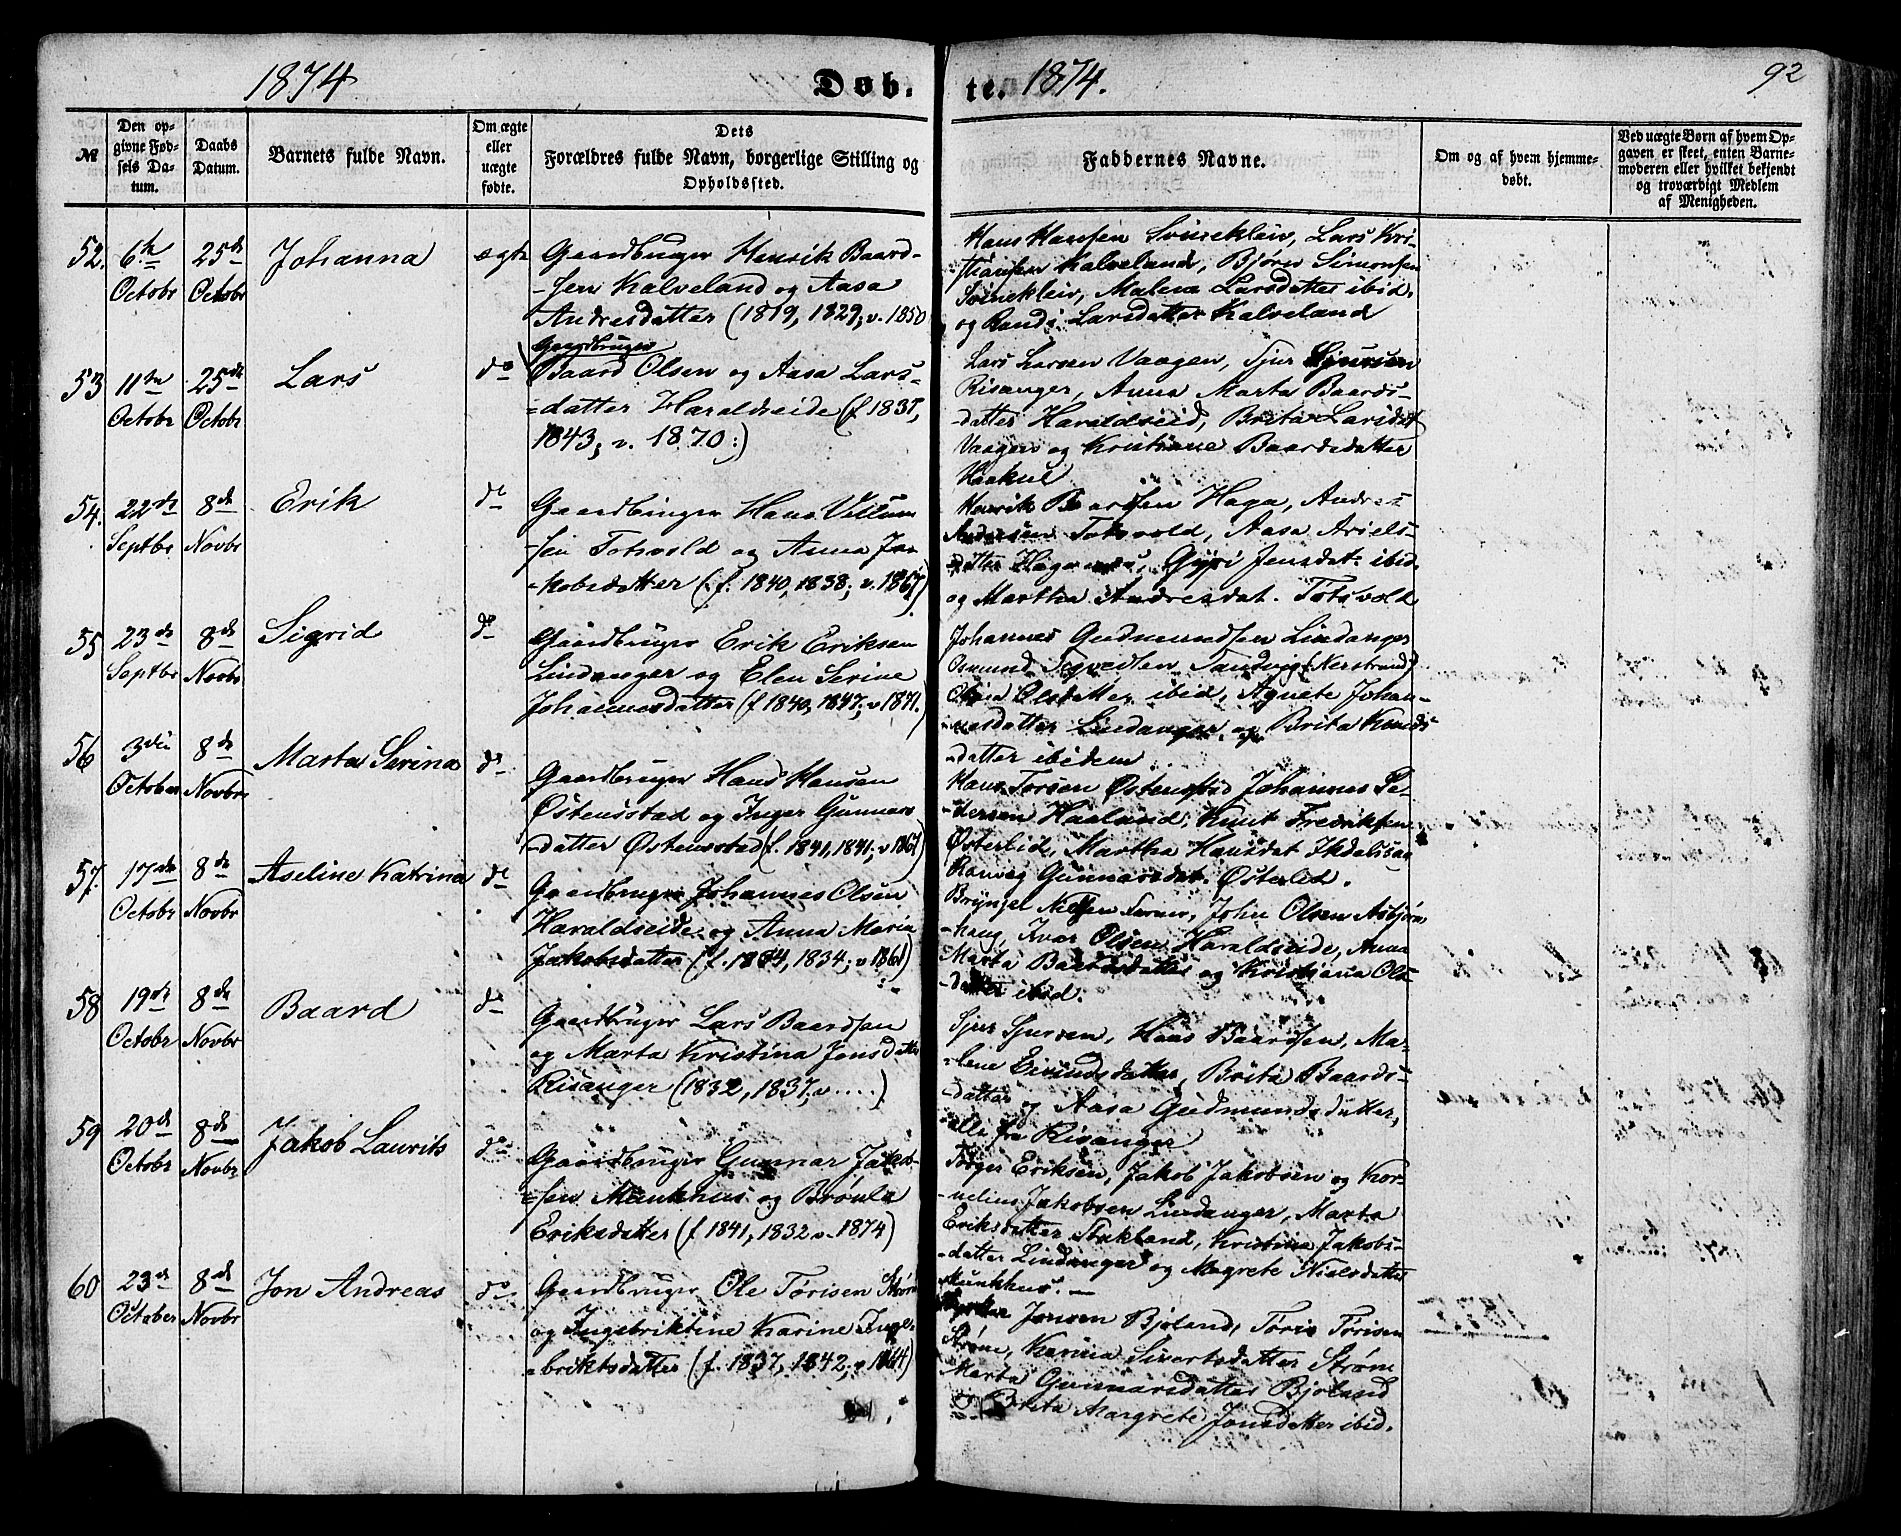 1874 Døb. te. 1874. 92
№
Den op-
givne Fød-
sels Da-
tum.
Daabs
Datum.
Barnets fulde Navn.
Om ægte
eller
uægte
fødte.
Dets
Forældres fulde Navn, borgerlige Stilling og
Opholdssted.
Faddernes Navne.
Om og af hvem hjemme-
døbt.
Ved uægte Børn af hvem Op-
gaven er skeet, enten Barne-
moderen eller hvilket bekjendt
og troværdigt Medlem
af Menigheden.
52. 6te Octobr 25de Octobr Johanna ægte
Gaardbruger Henrik Baard-
-sen Kalveland og Aasa
Andresdatter (1819, 1829; v. 1850
Hans Hansen Svinekleiv, Lars Kri-
stiansen Kalveland, Bjørn Simonsen
Svinekleiv, Malena Larsdatter ibid.
og Randi Larsdatter Kalveland
53 11te Octobr 25de Octobr Lars do
Gaardbruger
Baard Olsen og Aasa Lars-
=datter Haraldseide (f 1837,
1843; v. 1870:)
Lars Larsen Vaagen, Sjur Sjursen
Risanger, Anna Marta Baards-
-datter Haraldseid, Brita Larsdat
Vaagen og Kristiane Baardsdatter
54. 22de Septbr 8de Novbr Erik do
Gaardbruger Hans Villum
-sen Totsvold og Anna Ja-
-kobsdatter (: f. 1840, 1838; v. 1867)
Henrik Baardsen Haga, Andres
Andersen Totsvold, Aasa Ariels-
-datter Gyri Jensdat ibid
og Martha Andresdat. Totsvold
55 23de Septbr 8de Novbr Sigrid do
Gaardbruger Erik Eriksen
Lindanger og Elen Serine
Johannesdatter (f 1840, 1847; v 1871.)
Johannes Gudmundsen Lindanger
Osmund Sandvig (Nerstrand)
Olsdatter ibid, Agnete Johan-
-nesdatter Lindanger og Brita Knuds-
-datter ibidem
56 3die October 8de Novbr Marta Serina do
Gaardbruger Hans Hansen
Østensstad og Inger Gunnars
-datter Østensstad (f. 1841, 1841; v 1867)
Hans Torsen Østensstad Johannes Pe-
-dersen Haaland, Knut Fredriksen
Østerlid, Martha Hansdat
Ranveg Gunnarsdat. Østerlid.
57. 17de Octobr 8de Novbr Aseline Katrina do
Gaardbruger Johannes Olsen
Haraldseide og Anna Maria
Jakobsdatter (f. 1834, 1834; v 1861)
Bryngel Nilsen John Olsen Asbjørn
-haug, Ivar Olsen Haraldseide, Anna
Marta Baardsdatter og Kristiana Ols-
-datter ibid.
58 19de Octobr 8de Novbr Baard do
Gaardbruger Lars Baardsen
og Marta Kristina Jensdatter
Risanger (1832, 1837, v ....)
Sjur Sjursen, Hans Baardsen, Ma-
-lene Eivindsdatter, Brita Baards-
-datter og Aasa Gudmundsdatter,
alle fra Risanger
59 20de Octobr 8de Novbr Jakob Laurits do
Gaardbruger Gunnar Jakob-
-sen Munkhus og Brønla
Eriksdatter (f 1841, 1832 v. 1874)
Torger Eriksen, Jakob Jakobsen og Kor-
-nelius Jakobsen Lindanger, Marta
Eriksdatter Stokland, Kristina Jakobs-
-datter Lindanger og Magrete Nielsdatter
Munkhus. —
60 23de October 8de Novbr Jon Andreas do
Gaardbruger Ole Tørisen Strøm
og Ingebriktine Karine Inge-
=briktsdatter (f. 1837, 1842; v 1864)
Jonsen Bjoland, Tøris Tørisen
Strøm, Karina Sivertsdatter Strøm
Marta Gunnarsdatter Bjoland
og Brita Margrete Jonsdatter ibid.